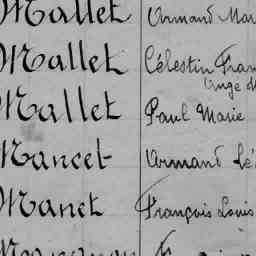 Mallet Armand Mar
Mallet Célestin Fran
Ange M
Mallet Paul Marie
Mancet Armand Lé
Manet François Louis